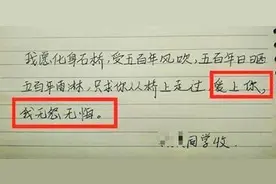 我愿化身石桥，受五百年风吹，五百年日晒
五百年雨淋，只求你从桥上走过，爱上你，
我无怨无悔。
同学收